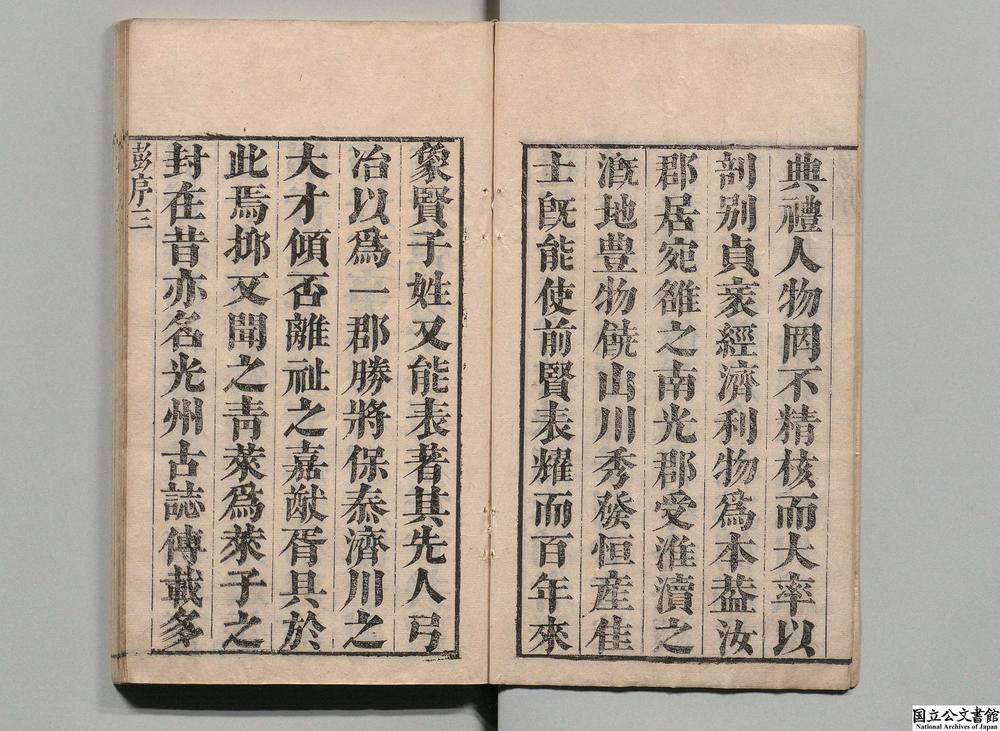 典禮人物罔不精核而大率以
剖别貞衺經濟利物爲本葢汝
郡居宛雒之南光郡受淮瀆之
漑地豊物饒山川秀發恒產隹
士旣能使前賢表耀而百年來
象賢子姓又能表著其先人弓
冶以爲一郡勝將保泰濟川之
大才傾否離祉之嘉猷胥具於
此焉抑又聞之青萊爲萊子之
封在昔亦名光州古誌傳載多
彭序三
国立公文書館
National Archives of Japan